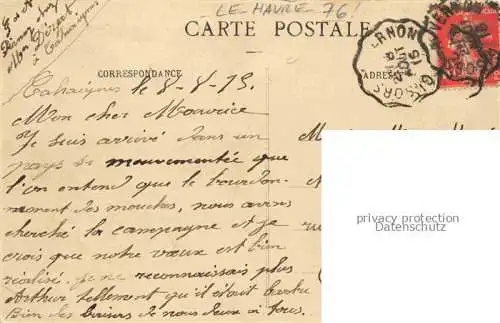 LE HAVRE 76!
CARTE POSTALE
CORRESPONDANCE
ADRES
Cahaignes le 8-8-15.
Mon cher Maurice
Je suis arrivé dans un
pays si mouvementée que
l'on entend que le bourdon-
nement des mouches, nous avons
cherché la campagne et je
crois que notre vœux est bien
réalisé. je ne reconnaissais plus
Arthur tellement qu'il était barbu
Bien des baisers de nous deux à tous.
privacy protection
(Datenschutz)